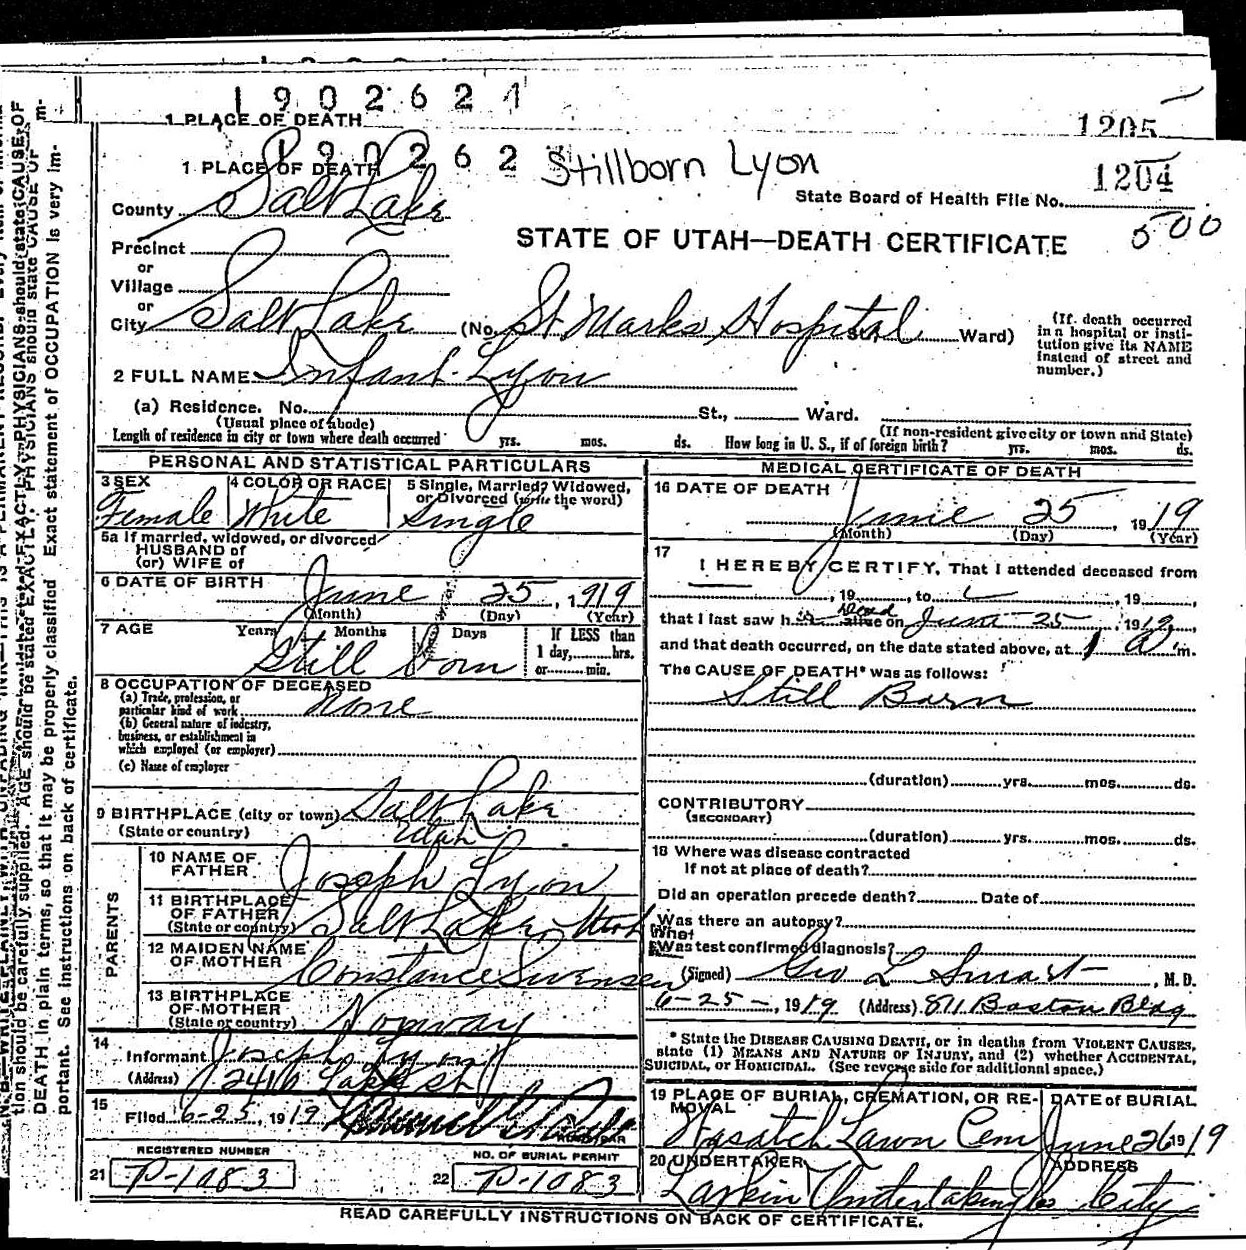 1902621
1 PLACE OF DEATH
1205
190262
Stillborn Lyon
1 PLACE OF DEATH
1204
State Board of Health File No.
County Salt Lake
500
STATE OF UTAH—DEATH CERTIFICATE
Precinct
or
Village
or
City Salt Lake (No. St Marks Hospital St. Ward)
(If death occurred in a hospital or insti-
tution give its NAME
instead of street and
number.)
2 FULL NAME Infant Lyon
(a) Residence. No. St., Ward.
(Usual place of abode)
(If non-resident give city or town and State)
Length of residence in city or town where death occurred yrs. mos. ds. How long in U. S., if of foreign birth? yrs. mos. ds.
PERSONAL AND STATISTICAL PARTICULARS
3 SEX
Female
4 COLOR OR RACE
White
5 Single, Married, Widowed,
or Divorced (write the word)
Single
5a If married, widowed, or divorced
HUSBAND of
(or) WIFE of
6 DATE OF BIRTH
June 25, 1919
(Month) (Day) (Year)
7 AGE Years Months Days
Still born
If LESS than
1 day, hrs.
or min.
8 OCCUPATION OF DECEASED
(a) Trade, profession, or
particular kind of work none
(b) General nature of industry,
business, or establishment in
which employed (or employer)
(c) Name of employer
9 BIRTHPLACE (city or town) Salt Lake
(State or country) Utah
PARENTS
10 NAME OF
FATHER Joseph Lyon
11 BIRTHPLACE
OF FATHER
(State or country) Salt Lake, Utah
12 MAIDEN NAME
OF MOTHER Constance Swensen
13 BIRTHPLACE
OF MOTHER
(State or country) Norway
14
Informant Joseph Lyon
(Address) 2416
15
Filed 6-25, 1919
REGISTRAR
REGISTERED NUMBER
21 P-1083
NO. OF BURIAL PERMIT
22 P-1083
MEDICAL CERTIFICATE OF DEATH
16 DATE OF DEATH
June 25, 1919
(Month) (Day) (Year)
17
I HEREBY CERTIFY, That I attended deceased from
, 19 , to , 19 ,
that I last saw h er dead alive on June 25, 1919,
and that death occurred, on the date stated above, at 1 a m.
The CAUSE OF DEATH* was as follows:
Still Born
(duration) yrs. mos. ds.
CONTRIBUTORY
(SECONDARY)
(duration) yrs. mos. ds.
18 Where was disease contracted
If not at place of death?
Did an operation precede death? Date of
Was there an autopsy?
What
Was test confirmed diagnosis?
(Signed) Geo L Smart, M. D.
6-25-, 1919 (Address) 811 Boston Bldg
* State the DISEASE CAUSING DEATH, or in deaths from VIOLENT CAUSES,
state (1) MEANS AND NATURE OF INJURY, and (2) whether ACCIDENTAL,
SUICIDAL, or HOMICIDAL. (See reverse side for additional space.)
19 PLACE OF BURIAL, CREMATION, OR RE-
MOVAL
Wasatch Lawn Cem
DATE of BURIAL
June 26 1919
20 UNDERTAKER
Larkin Undertaking Co
ADDRESS
City
READ CAREFULLY INSTRUCTIONS ON BACK OF CERTIFICATE.
tion should be carefully supplied. AGE should be stated EXACTLY. PHYSICIANS should state CAUSE OF
DEATH in plain terms, so that it may be properly classified. Exact statement of OCCUPATION is very im-
portant. See instructions on back of certificate.